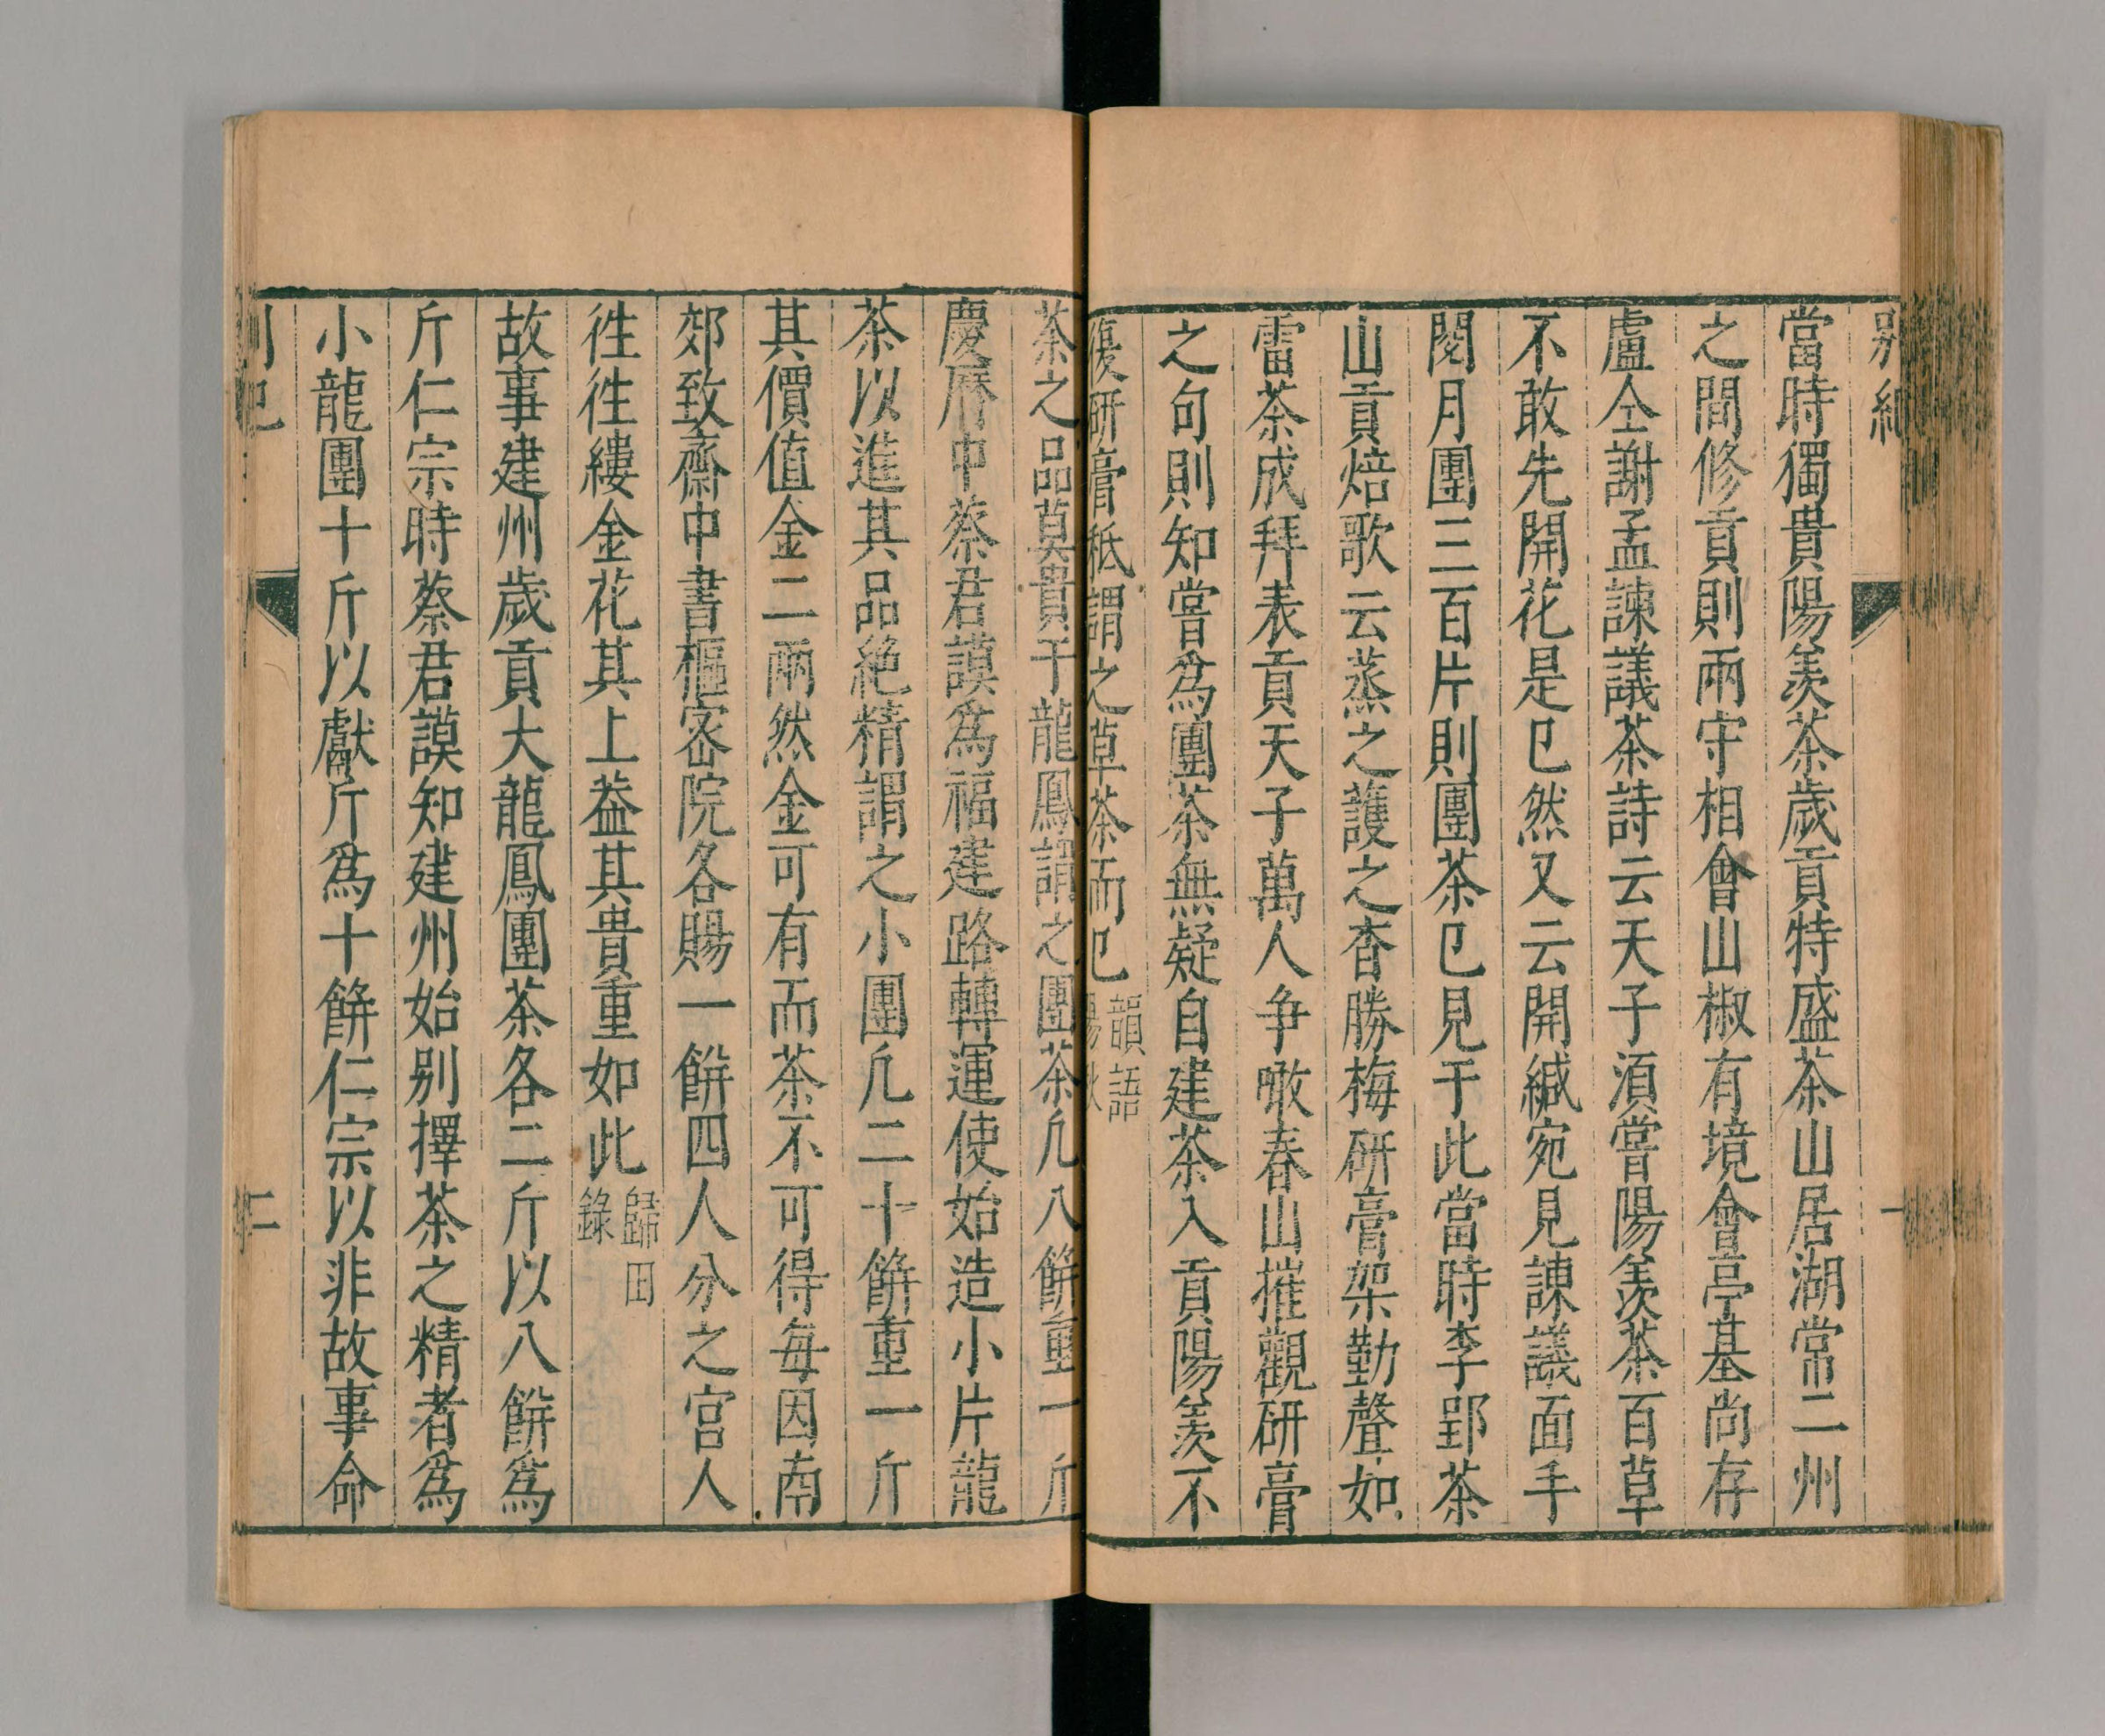 別紀
當時獨貴陽羨茶歲貢特盛茶山居湖常二州
之間修貢則兩守相會山椒有境會亭基尚存
盧仝謝孟諫議茶詩云天子須嘗陽羨茶百草
不敢先開花是已然又云開緘宛見諫議面手
閱月團三百片則團茶已見于此當時李郢茶
山貢焙歌云蒸之護之香勝梅研膏架動聲如
雷茶成拜表貢天子萬人爭噉春山摧觀研膏
之句則知嘗爲團茶無疑自建茶入貢陽羨不
復研膏秪謂之草茶而已韻語陽秋
茶之品莫貴于龍鳳謂之團茶凡八餅重一斤
慶曆中蔡君謨爲福建路轉運使始造小片龍
茶以進其品絶精謂之小團凡二十餅重一斤
其價值金二兩然金可有而茶不可得每因南
郊致齋中書樞密院各賜一餅四人分之宮人
徃徃縷金花其上葢其貴重如此歸田錄
故事建州歲貢大龍鳳團茶各二斤以八餅爲
斤仁宗時蔡君謨知建州始别擇茶之精者爲
小龍團十斤以獻斤爲十餅仁宗以非故事命
二